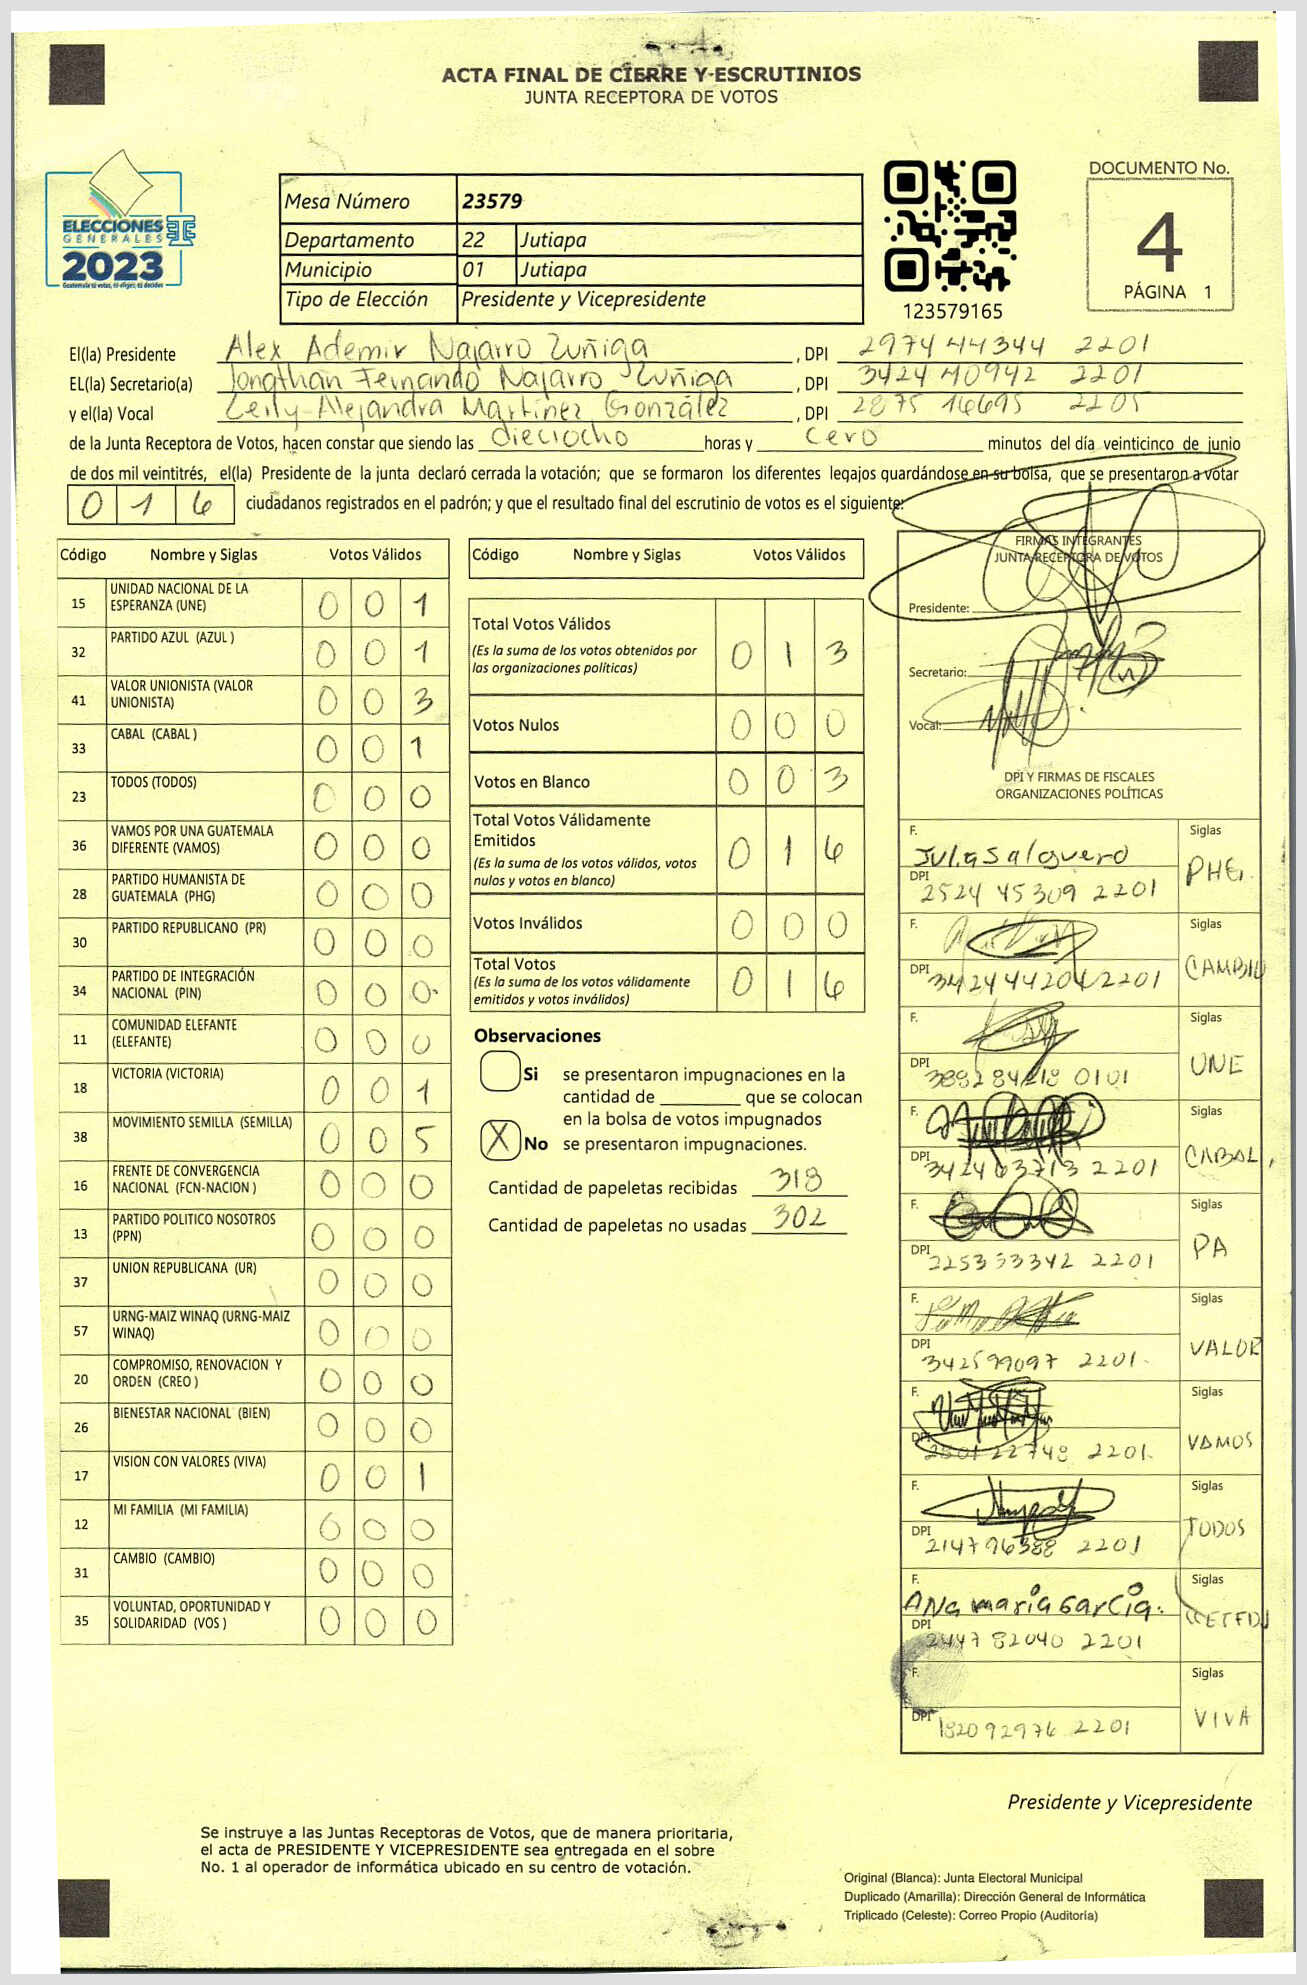 ACTA FINAL DE CIERRE Y ESCRUTINIOS
JUNTA RECEPTORA DE VOTOS
ELECCIONES
GENERALES
2023
Guatemala tú votas, tú eliges, tú decides
Mesa Número 23579
Departamento 22 Jutiapa
Municipio 01 Jutiapa
Tipo de Elección Presidente y Vicepresidente
123579165
DOCUMENTO No.
4
PÁGINA 1
El(la) Presidente Alex Ademir Najarro Zuñiga , DPI 2974 44344 2201
EL(la) Secretario(a) Jonathan Fernando Najarro Zuñiga , DPI 3424 40942 2201
y el(la) Vocal Leily Alejandra Martínez González , DPI 2875 16695 2205
de la Junta Receptora de Votos, hacen constar que siendo las dieciocho horas y cero minutos del día veinticinco de junio
de dos mil veintitrés, el(la) Presidente de la junta declaró cerrada la votación; que se formaron los diferentes legajos guardándose en su bolsa, que se presentaron a votar
0 1 6 ciudadanos registrados en el padrón; y que el resultado final del escrutinio de votos es el siguiente:
Código Nombre y Siglas Votos Válidos
15 UNIDAD NACIONAL DE LA ESPERANZA (UNE) 0 0 1
32 PARTIDO AZUL (AZUL ) 0 0 1
41 VALOR UNIONISTA (VALOR UNIONISTA) 0 0 3
33 CABAL (CABAL ) 0 0 1
23 TODOS (TODOS) 0 0 0
36 VAMOS POR UNA GUATEMALA DIFERENTE (VAMOS) 0 0 0
28 PARTIDO HUMANISTA DE GUATEMALA (PHG) 0 0 0
30 PARTIDO REPUBLICANO (PR) 0 0 0
34 PARTIDO DE INTEGRACIÓN NACIONAL (PIN) 0 0 0
11 COMUNIDAD ELEFANTE (ELEFANTE) 0 0 0
18 VICTORIA (VICTORIA) 0 0 1
38 MOVIMIENTO SEMILLA (SEMILLA) 0 0 5
16 FRENTE DE CONVERGENCIA NACIONAL (FCN-NACION ) 0 0 0
13 PARTIDO POLITICO NOSOTROS (PPN) 0 0 0
37 UNION REPUBLICANA (UR) 0 0 0
57 URNG-MAIZ WINAQ (URNG-MAIZ WINAQ) 0 0 0
20 COMPROMISO, RENOVACION Y ORDEN (CREO ) 0 0 0
26 BIENESTAR NACIONAL (BIEN) 0 0 0
17 VISION CON VALORES (VIVA) 0 0 1
12 MI FAMILIA (MI FAMILIA) 0 0 0
31 CAMBIO (CAMBIO) 0 0 0
35 VOLUNTAD, OPORTUNIDAD Y SOLIDARIDAD (VOS ) 0 0 0
Código Nombre y Siglas Votos Válidos
Total Votos Válidos 0 1 3
(Es la suma de los votos obtenidos por
las organizaciones políticas)
Votos Nulos 0 0 0
Votos en Blanco 0 0 3
Total Votos Válidamente
Emitidos 0 1 6
(Es la suma de los votos válidos, votos
nulos y votos en blanco)
Votos Inválidos 0 0 0
Total Votos 0 1 6
(Es la suma de los votos válidamente
emitidos y votos inválidos)
Observaciones
Si se presentaron impugnaciones en la
cantidad de ________ que se colocan
en la bolsa de votos impugnados
X No se presentaron impugnaciones.
Cantidad de papeletas recibidas 318
Cantidad de papeletas no usadas 302
FIRMAS INTEGRANTES
JUNTA RECEPTORA DE VOTOS
Presidente:
Secretario:
Vocal:
DPI Y FIRMAS DE FISCALES
ORGANIZACIONES POLÍTICAS
F. Julia Salguero Siglas PHG.
DPI 2524 45309 2201
F. Siglas CAMBIO
DPI 3424442042201
F. Siglas UNE
DPI 388284218 0101
F. Siglas CABAL,
DPI 342403713 2201
F. Siglas PA
DPI 225333342 2201
F. Siglas VALOR
DPI 342599097 2201.
F. Siglas VAMOS
DPI 22748 2201.
F. Siglas TODOS
DPI 214796388 2201
F. Ana maria Garcia. Siglas
DPI 244782040 2201
F. Siglas VIVA
DPI 182092976 2201
Presidente y Vicepresidente
Se instruye a las Juntas Receptoras de Votos, que de manera prioritaria,
el acta de PRESIDENTE Y VICEPRESIDENTE sea entregada en el sobre
No. 1 al operador de informática ubicado en su centro de votación.
Original (Blanca): Junta Electoral Municipal
Duplicado (Amarilla): Dirección General de Informática
Triplicado (Celeste): Correo Propio (Auditoría)